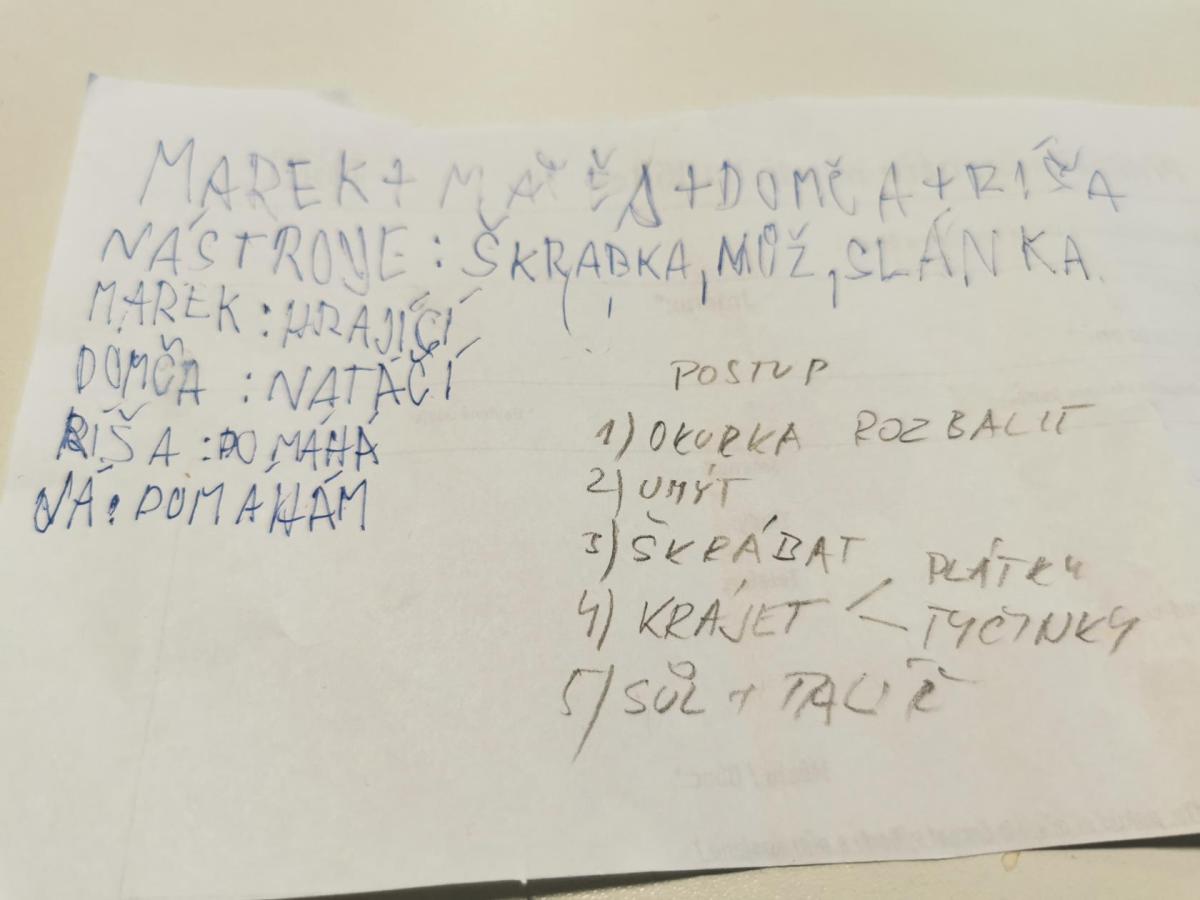 MAREK + MAŤĚJ + DOMČA + RÍŠA
NÁSTROJE : ŠKRABKA, NŮŽ, SLÁNKA.
MAREK : HRAJÍČÍ
DOMČA : NATÁČÍ
RÍŠA : POMÁHÁ
JÁ : POMÁHÁM
POSTUP
1) OKURKA ROZBALIT
2) UMÝT
3) ŠKRÁBAT
4) KRÁJET < PLÁTKY
TYČINKY
5) SŮL + TALÍŘ